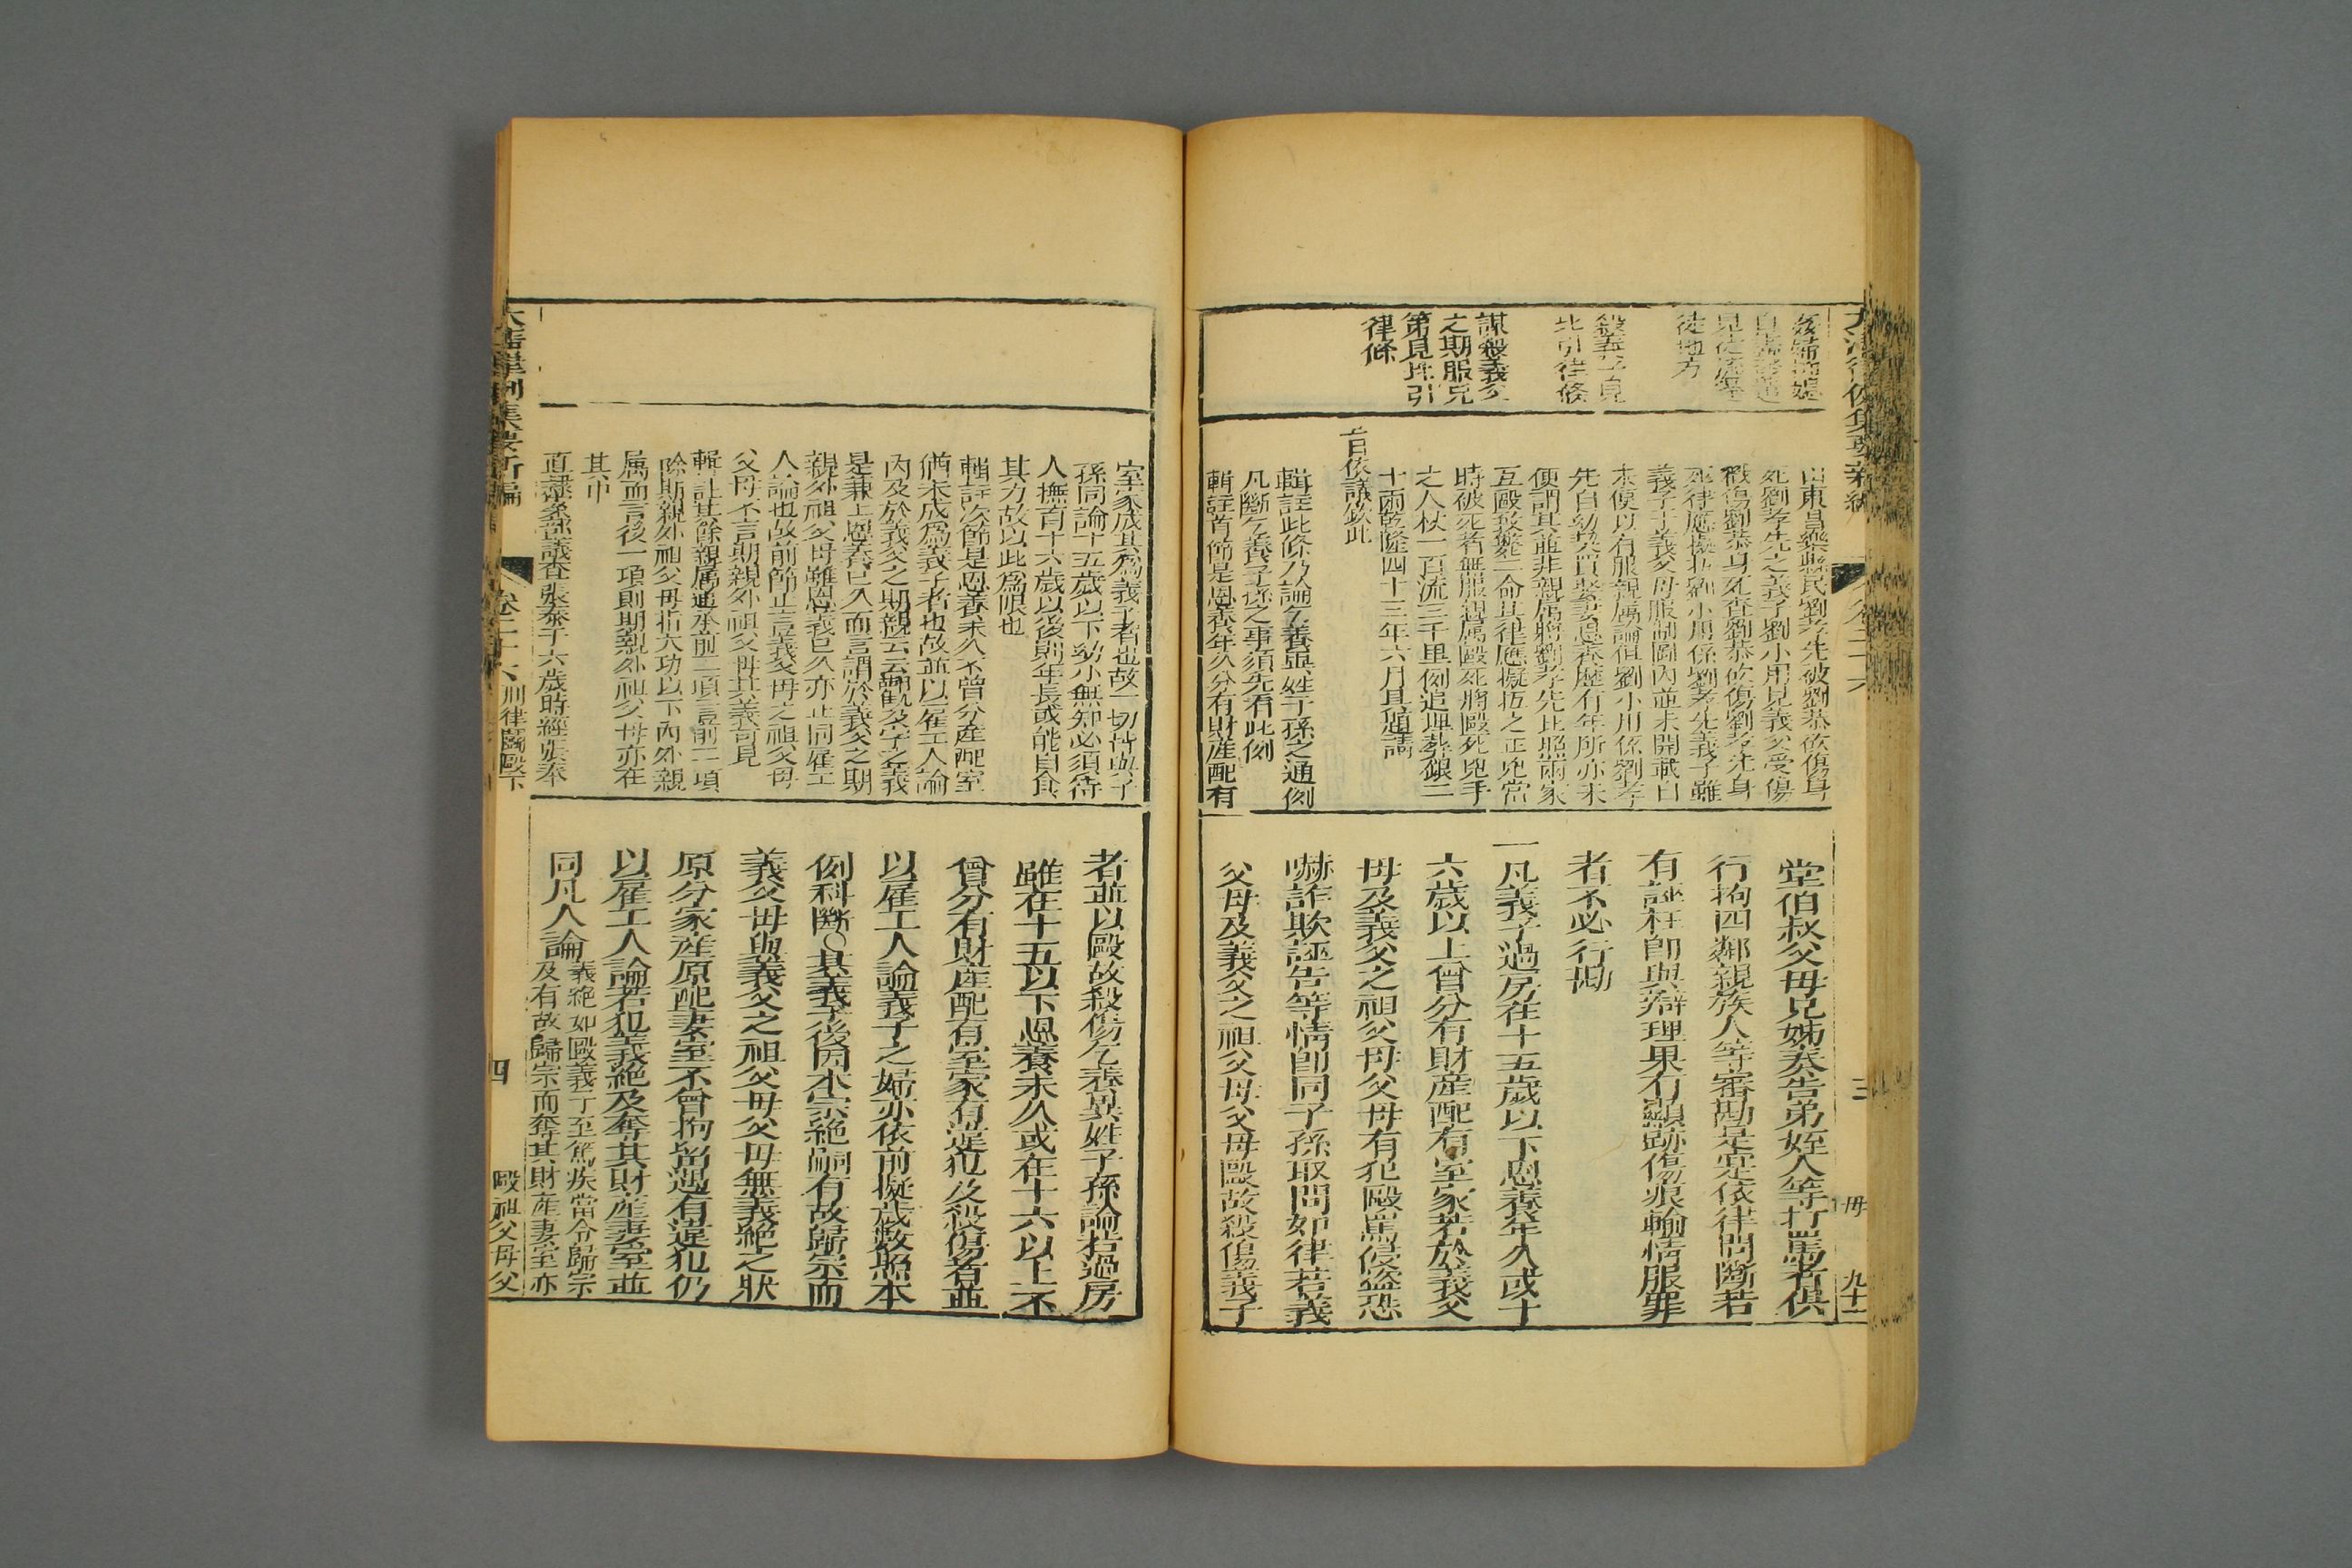 大清律例集要新編
卷二十六
三
毋
九十一
謀殺義父
之期服兄
弟見比引
律條
殺義子見
比引律條
徒地方
山東昌樂縣民劉孝先被劉恭砍傷身
死劉孝先之義子劉小用見義父受傷
戳傷劉恭身死查劉恭砍傷劉孝先身
死律應擬抵劉小用係劉孝先義子雖
義子于義父母服制圖內並未開載白
未便以有服親属論但劉小用係劉孝
先自幼契買娶妻恩養歷有年所亦未
便謂其並非親属將劉孝先比照兩家
互毆致斃二命其律應擬抵之正兇當
時被死者無服親属毆死將毆死兇手
之人杖一百流三千里例追埋葬銀二
十兩乾隆四十三年六月具題請
旨依議欽此
輯註此條乃論乞養異姓子孫之通例
凡斷乞養子孫之事須先看此例
輯註首節是恩養年久分有財產配有
堂伯叔父母兄姊奏告弟姪人等打罵者俱
行拘四鄰親族人等審勘是實依律問斷若
有誣枉即與辯理果有顯跡傷痕輸情服罪
者不必行勘
一凡義子過房在十五歲以下恩養年久或十
六歲以上曾分有財產配有室家若於義父
母及義父之祖父母父母有犯毆罵侵盜恐
嚇詐欺誣告等情即同子孫取問如律若義
父母及義父之祖父母父母毆故殺傷義子
室家成其為義子者也故一切皆與子
孫同論十五歲以下幼小無知必須待
人撫育十六歲以後則年長或能自食
其力故以此為限也
輯註次節是恩養未久不曾分產配室
猶未成為義子者也故並以雇工人論
內及於義父之期親云云觀及字之義
是兼上恩養已久而言謂於義父之期
親外祖父母雖恩義已久亦止同雇工
人論也故前節止言義父母之祖父母
父母不言期親外祖父母其義可見
輯註其餘親属通承前二項言前二項
除期親外祖父母指大功以下內外親
属而言後一項則期親外祖父母亦在
其中
直隸案部議查張泰于六歲時經張奉
者並以毆故殺傷乞養異姓子孫論若過房
雖在十五以下恩養未久或在十六以上不
曾分有財產配有室家有違犯及殺傷者並
以雇工人論義子之婦亦依前擬歲數照本
例科斷○其義子後因本宗絕嗣有故歸宗而
義父母與義父之祖父母父母無義絕之狀
原分家產原配妻室不曾拘留遇有違犯仍
以雇工人論若犯義絕及奪其財產妻室並
同凡人論義絕如毆義子至篤疾當令歸宗
及有故歸宗而奪其財產妻室亦
大清律例集要新編
卷二十六
刑律鬭毆下
四
毆祖父母父